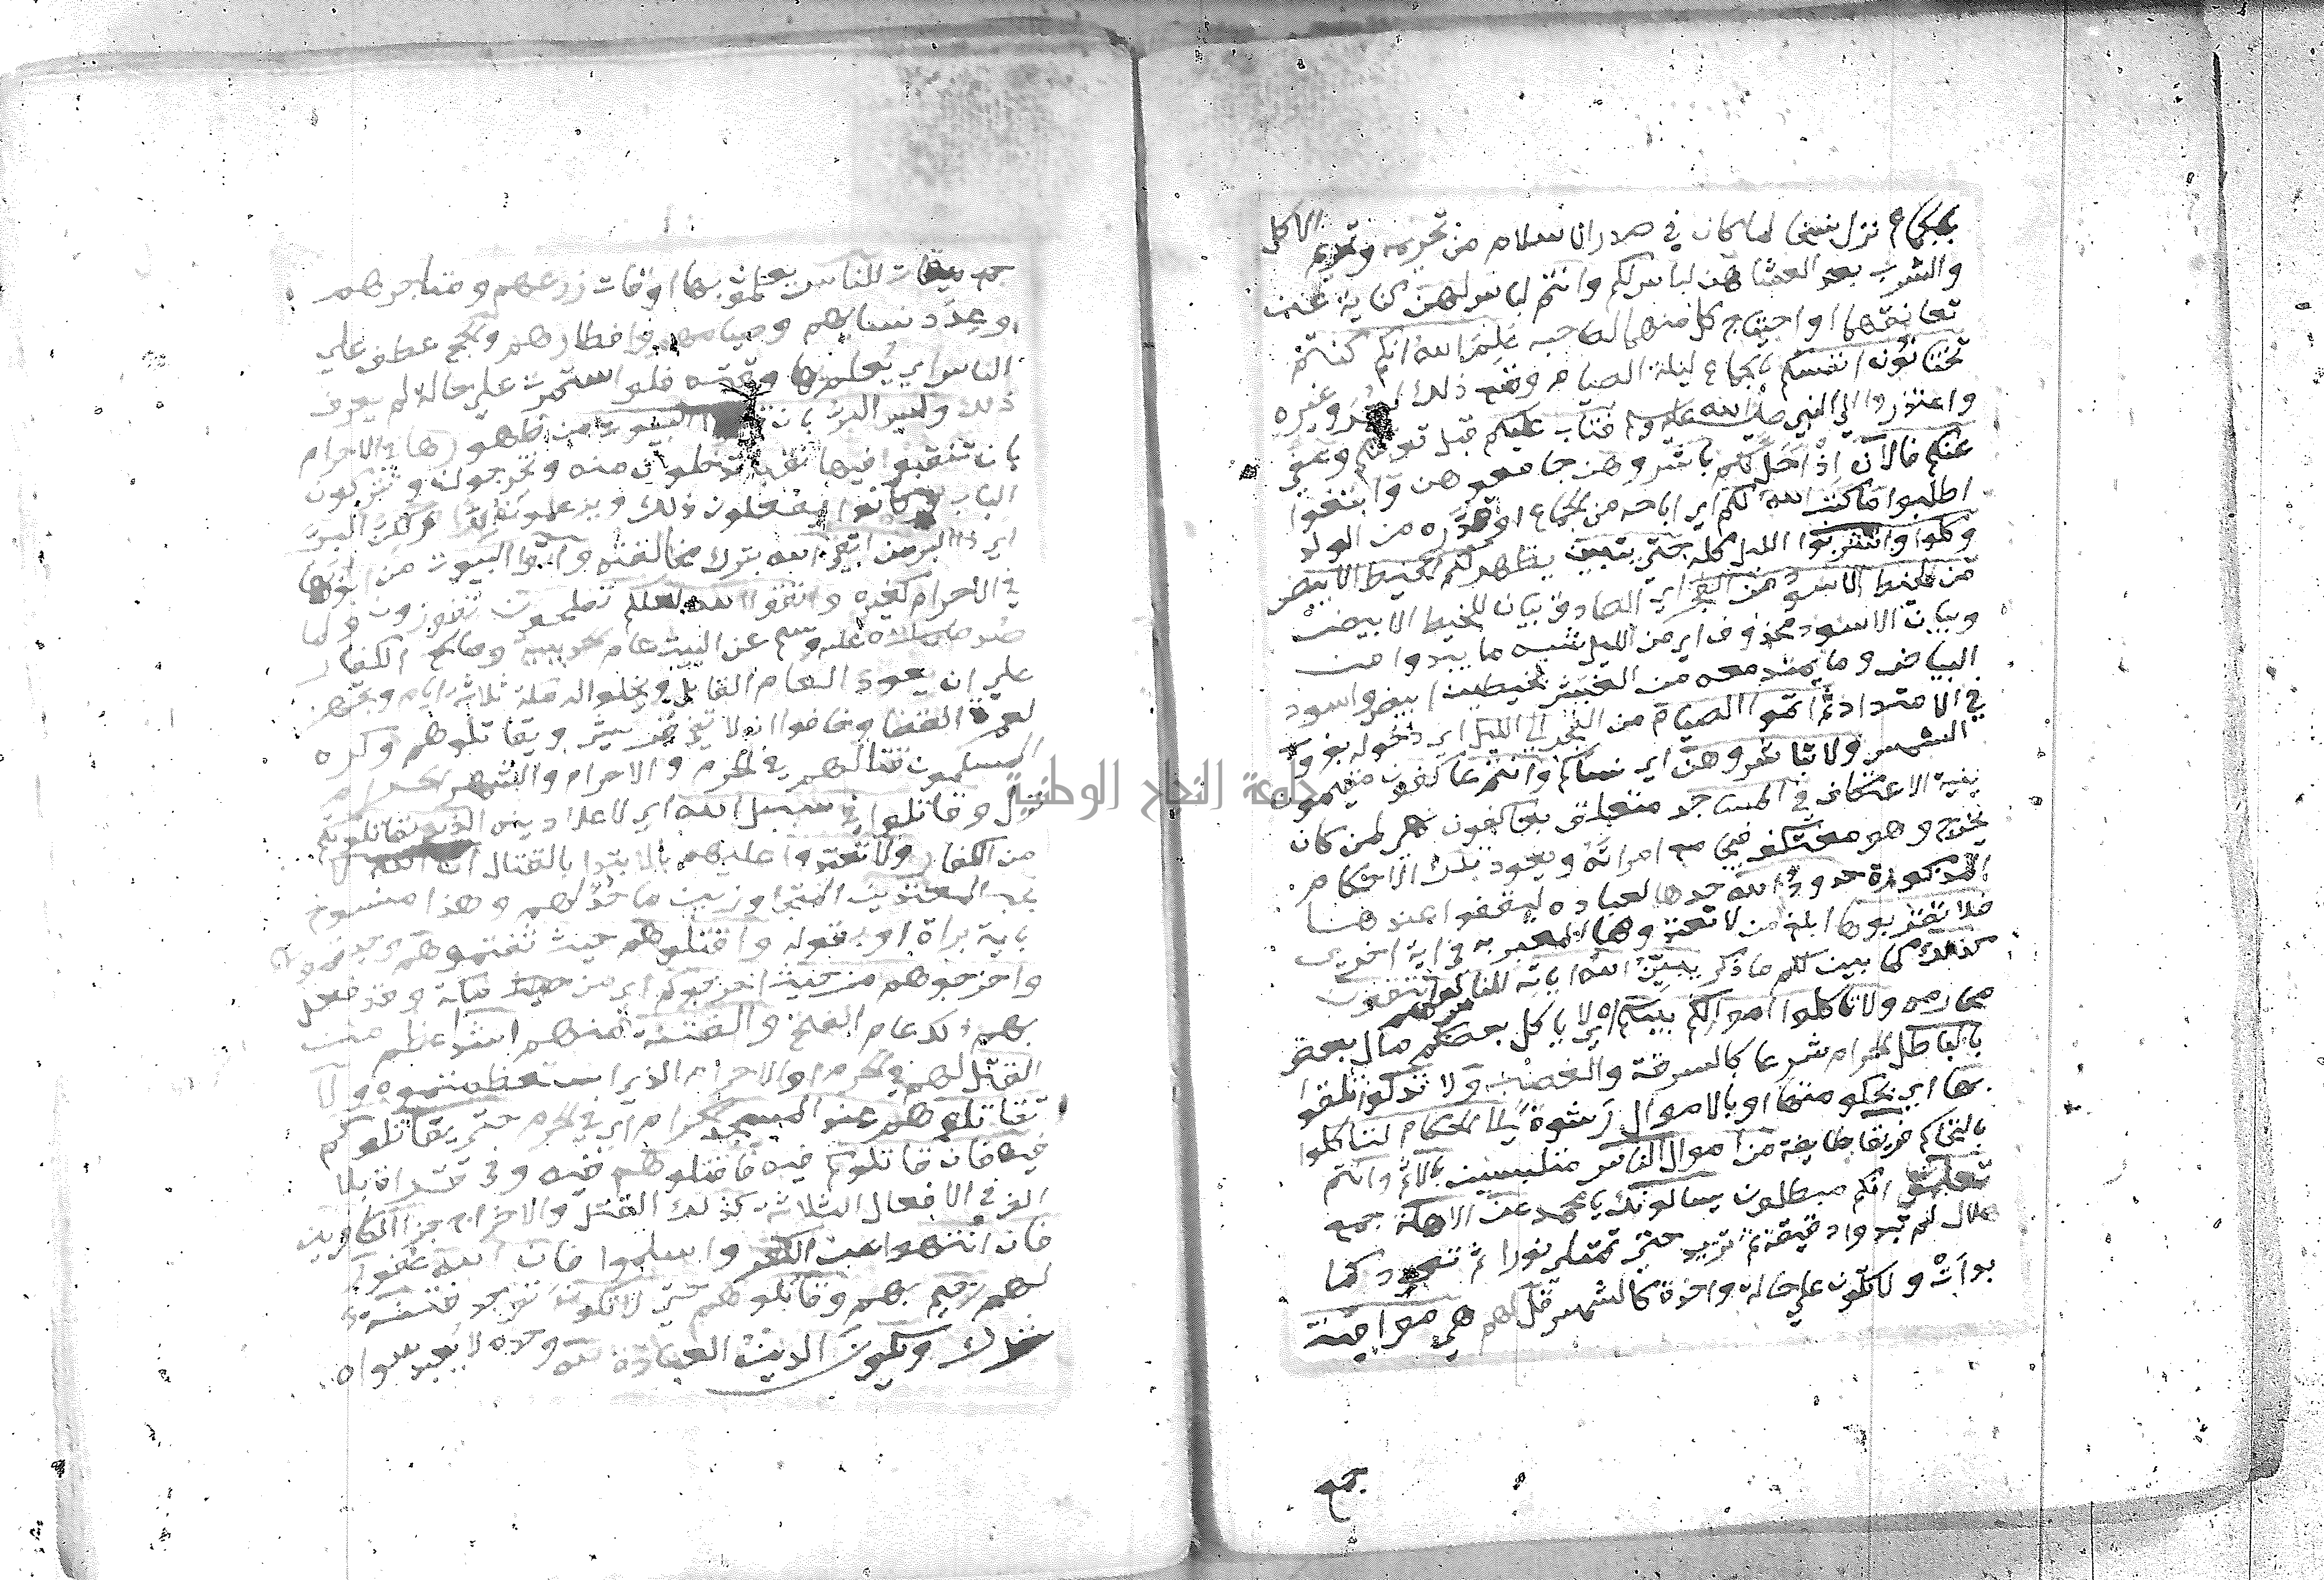 بالجماع نزل نسخا لما كان في صدر الاسلام من تحريمه وتحريم الاكل
والشرب بعد العشا هن لباس لكم وانتم لباس لهن كناية عن
تعانقهما او احتياج كل منهما الى صاحبه علم الله انكم كنتم
تختانون انفسكم بالجماع ليلة الصيام وقع ذلك لعمر وغيره
واعتذروا الي النبي صلي الله عليه وسلم فتاب عليكم قبل توبتكم وعفي
عنكم فالآن اذ احل لكم باشروهن جامعوهن وابتغوا
اطلبوا ما كتب الله لكم اي اباحه من الجماع او قدره من الولد
وكلوا واشربوا الليل كله حتي يتبين يظهر لكم الخيط الابيض
من الخيط الاسود من الفجر اي الصادق بيان للخيط الابيض
وبيان الاسود محذوف اي من الليل شبه ما يبدوا من
البياض وما يمتد معه من الغبش بخيطين ابيض واسود
في الامتداد ثم اتموا الصيام من الفجر الي الليل اي دخوله بغروب
الشمس ولا تباشروهن اي نساكم وانتم عاكفون مقيمون
بنية الاعتكاف في المساجد متعلق بعاكفون نهي لمن كان
يخرج وهو معتكف فيجامع امراته ويعود تلك الاحكام
المذكورة حدود الله حدها لعباده ليقفوا عندها
فلا تقربوها ابلغ من لا تعتدوها المعبر به في اية اخري
كذلك كما بين لكم ما ذكر يبين الله اياته للناس لعلهم يتقون
محارمه ولا تاكلوا اموالكم بينكم اي لا ياكل بعضكم مال بعض
بالباطل الحرام شرعا كالسرقة والغصب ولا تدلوا تلقوا
بها اي بحكومتها او بالاموال رشوة الي الحكام لتاكلوا
بالتحاكم فريقا طايفة من اموال الناس متلبسين بالاثم وانتم
تعلمون انكم مبطلون يسالونك يا محمد عن الاهلة جمع
هلال لم تبدوا دقيقة ثم تزيد حتي تمتلي نورا ثم تعود كما
بدات ولا تكون علي حالة واحدة كالشمس قل لهم هي مواقيت
جمع
جمع ميقات للناس يعلمون بها اوقات زرعهم ومتاجرهم
وعدد نسايهم وصيامهم وافطارهم والحج عطف علي
الناس اي يعلم بها وقته فلو استمرت علي حالة لم يعرف
ذلك وليس البر بان تاتوا البيوت من ظهورها في الاحرام
بان تنقبوا فيها نقبا تدخلون منه وتخرجون وتتركون
الباب وكانوا يفعلون ذلك ويزعمونه برا ولكن البر
اي ذا البر من اتقى الله بترك مخالفته واتوا البيوت من ابوابها
في الاحرام كغيره واتقوا الله لعلكم تفلحون تفوزون ولما
صد صلي الله عليه وسلم عن البيت عام الحديبية وصالح الكفار
علي ان يعود العام القابل ويخلوا له مكة ثلاثة ايام وتجهز
لعمرة القضا وخافوا ان لا تفي قريش ويقاتلوهم وكره
المسلمون قتالهم في الحرم والاحرام والشهر الحرام
نزل وقاتلوا في سبيل الله اي لاعلا دينه الذين يقاتلونكم
من الكفار ولا تعتدوا عليهم بالابتدا بالقتال ان الله لا
يحب المعتدين المتجاوزين ما حد لهم وهذا منسوخ
باية براة او بقوله واقتلوهم حيث ثقفتموهم وجدتموهم
واخرجوهم من حيث اخرجوكم اي من مكة وقد فعل
بهم ذلك عام الفتح والفتنة منهم اشد اعظم من
القتل لهم في الحرم او الاحرام الذي استعظمتموه ولا
تقاتلوهم عند المسجد الحرام اي في الحرم حتي يقاتلوكم
فيه فان قاتلوكم فيه فاقتلوهم فيه وفي قراة بلا
الف في الافعال الثلاثة كذلك القتل والاخراج جزا الكافرين
فان انتهوا عن الكفر واسلموا فان الله غفور
لهم رحيم بهم وقاتلوهم حتي لا تكون توجد فتنة
شرك ويكون الدين العبادة لله وحده لا يعبد سواه
جامعة النجاح الوطنية